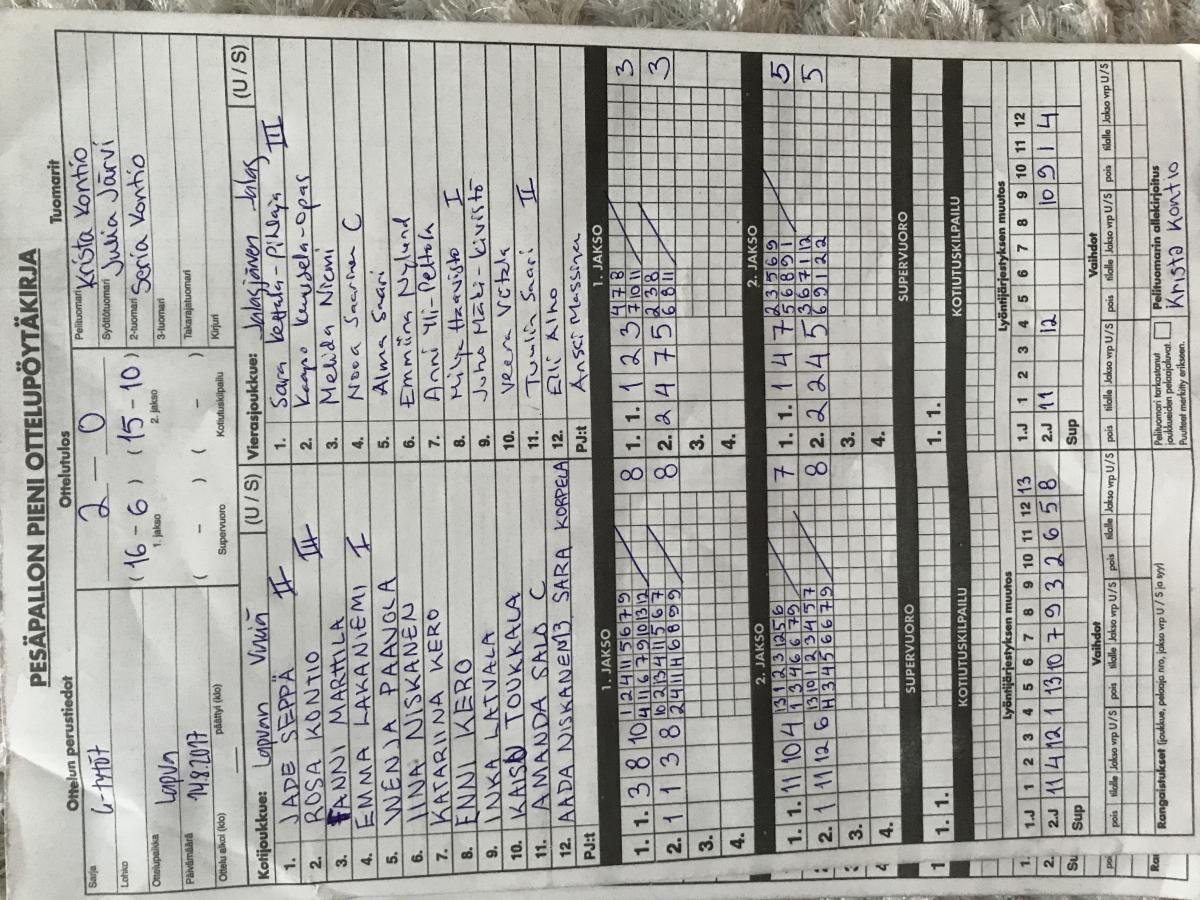 PESÄPALLON PIENI OTTELUPÖYTÄKIRJA
Ottelun perustiedot
Sarja G-tytöt
Lohko
Ottelupaikka Lapua
Päivämäärä 14.8.2017
Ottelu alkoi (klo) päättyi (klo)
Ottelutulos
2 — 0
( 16 - 6 ) ( 15 - 10 )
1. jakso 2. jakso
( - ) ( - )
Supervuoro Kotiutuskilpailu
Tuomarit
Pelituomari Krista Kontio
Syöttötuomari Julia Järvi
2-tuomari Senja Kontio
3-tuomari
Takarajatuomari
Kirjuri
Kotijoukkue: Lapuan Virkiä (U / S)
1. JADE SEPPÄ II
2. ROSA KONTIO III
3. FANNI MARTTILA
4. EMMA LAKANIEMI I
5. VENJA PAANOLA
6. IINA NISKANEN
7. KATARIINA KERO
8. ENNI KERO
9. INKA LATVALA
10. KAISA TOUKKALA
11. AMANDA SALO C
12. AADA NISKANEN 13 SARA KORPELA
PJ:t
Vierasjoukkue: Jalasjärven Jalas (U / S)
1. Sara Kettala-Pihlaja III
2. Kaapo
3. Melida Niemi
4. Nooa Saarinen C
5. Alma Saari
6. Emmiina Nylund
7. Anni Yli-Peltola
8. Milja Haavisto I
9. Juho Mäki-Kivistö
10. Veera
11. Tuulia Saari II
12. Eli Alho
PJ:t Anssi Massinen
1. JAKSO
1. 1. 3 8 10
8
2. 1 1 3 8
8
3.
4.
1. JAKSO
1. 1. 1 2 3 4 7 8
7 10 11
3
2. 2 4 7 5 2 3 8
6 8 11
3
3.
4.
2. JAKSO
1. 1. 11 10 4
7
2. 1 11 12 6
8
3.
4.
2. JAKSO
1. 1. 1 4 7 2 3 5 6 9
5 6 8 9 1
5
2. 2 2 4 5 3 6 7 11 12
6 9 12 2
5
3.
4.
SUPERVUORO
1. 1.
SUPERVUORO
1. 1.
KOTIUTUSKILPAILU
KOTIUTUSKILPAILU
Lyöntijärjestyksen muutos
1.J 1 2 3 4 5 6 7 8 9 10 11 12 13
2.J 11 4 12 1 13 10 7 9 3 2 6 5 8
Sup
Lyöntijärjestyksen muutos
1.J 1 2 3 4 5 6 7 8 9 10 11 12
2.J 11 12 10 9 1 4
Sup
Vaihdot
pois tilalle Jakso vrp U/S pois tilalle Jakso vrp U/S pois tilalle Jakso vrp U/S
Vaihdot
pois tilalle Jakso vrp U/S pois tilalle Jakso vrp U/S pois tilalle Jakso vrp U/S
Rangaistukset (joukkue, pelaaja nro, jakso vrp U / S ja syy)
Pelituomari tarkastanut
joukkueiden pelaajaluvat.
Puutteet merkitty erikseen.
Pelituomarin allekirjoitus
Krista Kontio